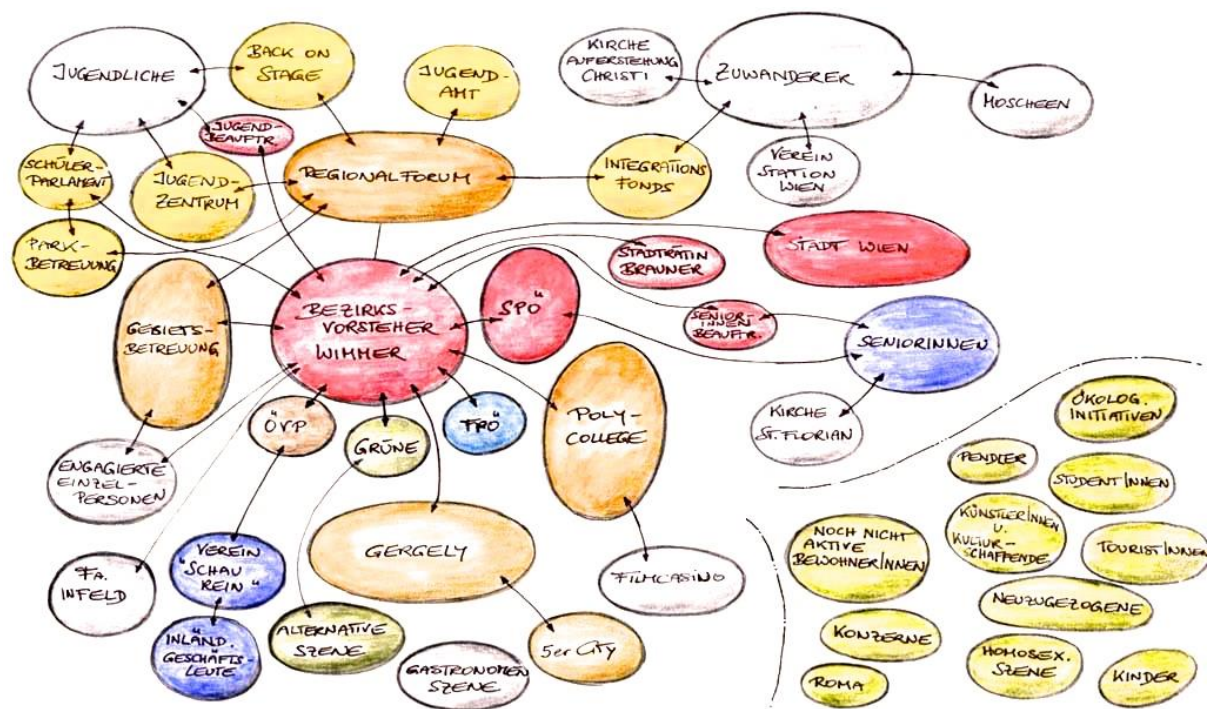 JUGENDLICHE
BACK ON
STAGE
JUGEND-
AMT
KIRCHE
AUFERSTEHUNG
CHRISTI
ZUWANDERER
MOSCHEEN
JUGEND-
BEAUFTR.
SCHÜLER-
PARLAMENT
JUGEND-
ZENTRUM
REGIONALFORUM
INTEGRATIONS
FONDS
VEREIN
STATION
WIEN
PARK-
BETREUUNG
STADTRÄTIN
BRAUNER
STADT WIEN
GEBIETS-
BETREUUNG
BEZIRKS-
VORSTEHER
WIMMER
SPÖ
SENIOR-
INNEN
BEAUFTR.
SENIORINNEN
ÖVP
GRÜNE
FPÖ
POLY-
COLLEGE
KIRCHE
ST. FLORIAN
ENGAGIERTE
EINZEL-
PERSONEN
FA.
INFELD
VEREIN
"SCHAU
REIN"
GERGELY
FILMCASINO
INLÄND.
GESCHÄFTS-
LEUTE
ALTERNATIVE
SZENE
GASTRONOMEN
SZENE
5er CITY
ÖKOLOG.
INITIATIVEN
PENDLER
STUDENT/INNEN
NOCH NICHT
AKTIVE
BEWOHNER/INNEN
KÜNSTLER/INNEN
U.
KULTUR-
SCHAFFENDE
TOURIST/INNEN
NEUZUGEZOGENE
KONZERNE
HOMOSEX.
SZENE
KINDER
ROMA